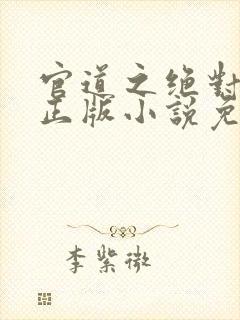 官道之绝對
正版小說免
李紫微